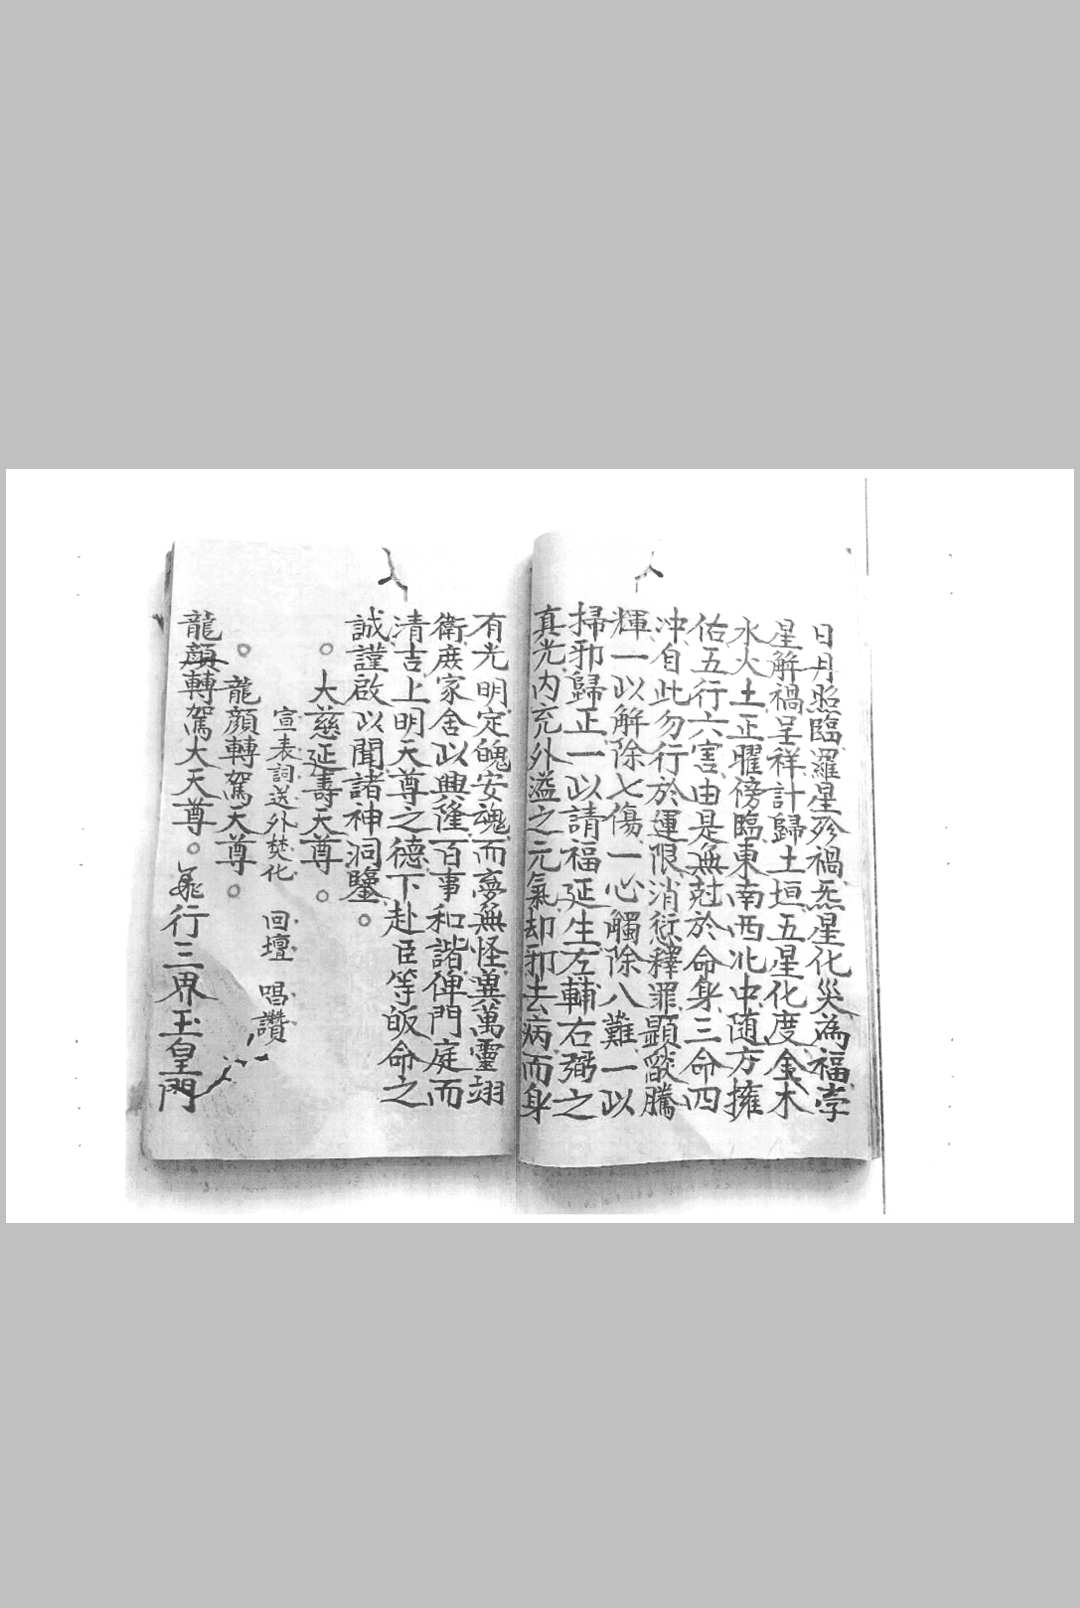 日月照臨羅星殄禍炁星化災為福孛
星解禍呈祥計歸土垣五星化度金木
水火土正曜傍臨東南西北中随方擁
佑五行六害由是無尅於命身三命四
冲自此勿行於運限消愆釋罪顕㷔騰
輝一以解除七傷一心觸除八難一以
掃邪歸正一以請福延生左輔右弼之
真光内充外溢之元氣却邪去病而身
有光明定魄安魂而夢無怪異萬靈翊
衛庶家舍以興隆百事和諧俾門庭而
清吉上明天尊之德下赴臣等皈命之
誠謹啟以聞諸神洞鑒。
。大慈延壽天尊。
宣表詞送外焚化 回壇 唱讚
。龍顔轉駕大天尊。
龍顔轉駕大天尊。行三界玉皇門